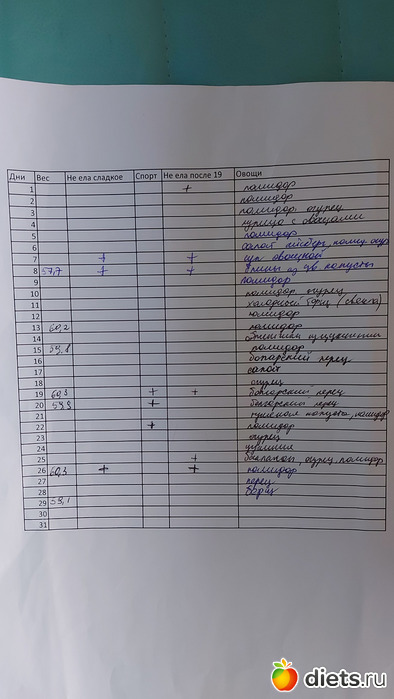 Дни Вес Не ела сладкое Спорт Не ела после 19 Овощи
1 + помидор
2 помидор
3 помидор, огурец
4 курица с овощами
5 помидор
6 салат
7 + + суп овощной
8 57,7 + + блины из цв капусты
9 помидор
10 помидор, огурец
11 холодный борщ (свекла)
12 помидор
13 60,2 помидор
14
15 59,8 помидор
16 болгарский перец
17 салат
18 огурец
19 60,3 + + болгарский перец
20 59,9 + болгарский перец
21 капуста, помидор
22 + помидор
23 огурец
24
25 + баклажаны, огурец, помидор
26 60,3 + + помидор
27 перец
28 борщ
29 59,1
30
31
diets.ru